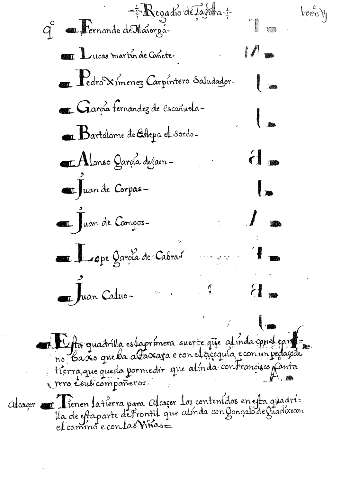 Regadio de
9º Fernando de Maiorga
Lucas martin de Cañete
Pedro Ximenez Carpintero Saludador
Garcia fernandez de Escañuela
Bartolome de Estepa el Sordo
Alonso Garcia de Jaen
Juan de Corpas
Juan de Campos
Lope Garcia de Cabra
Juan Calvo
Esta quadrilla es la primera suerte que alinda con el cami
no baxo que ba a e con el açequia e con un pedaço de
tierra, que queda por medir que alinda con Francisco
rro e sus compañeros
Alcaçer Tienen la tierra para Alcaçer los contenidos en esta quadri
lla de esta parte de Frontil que alinda con Gonçalo de
el camino e con las Viñas